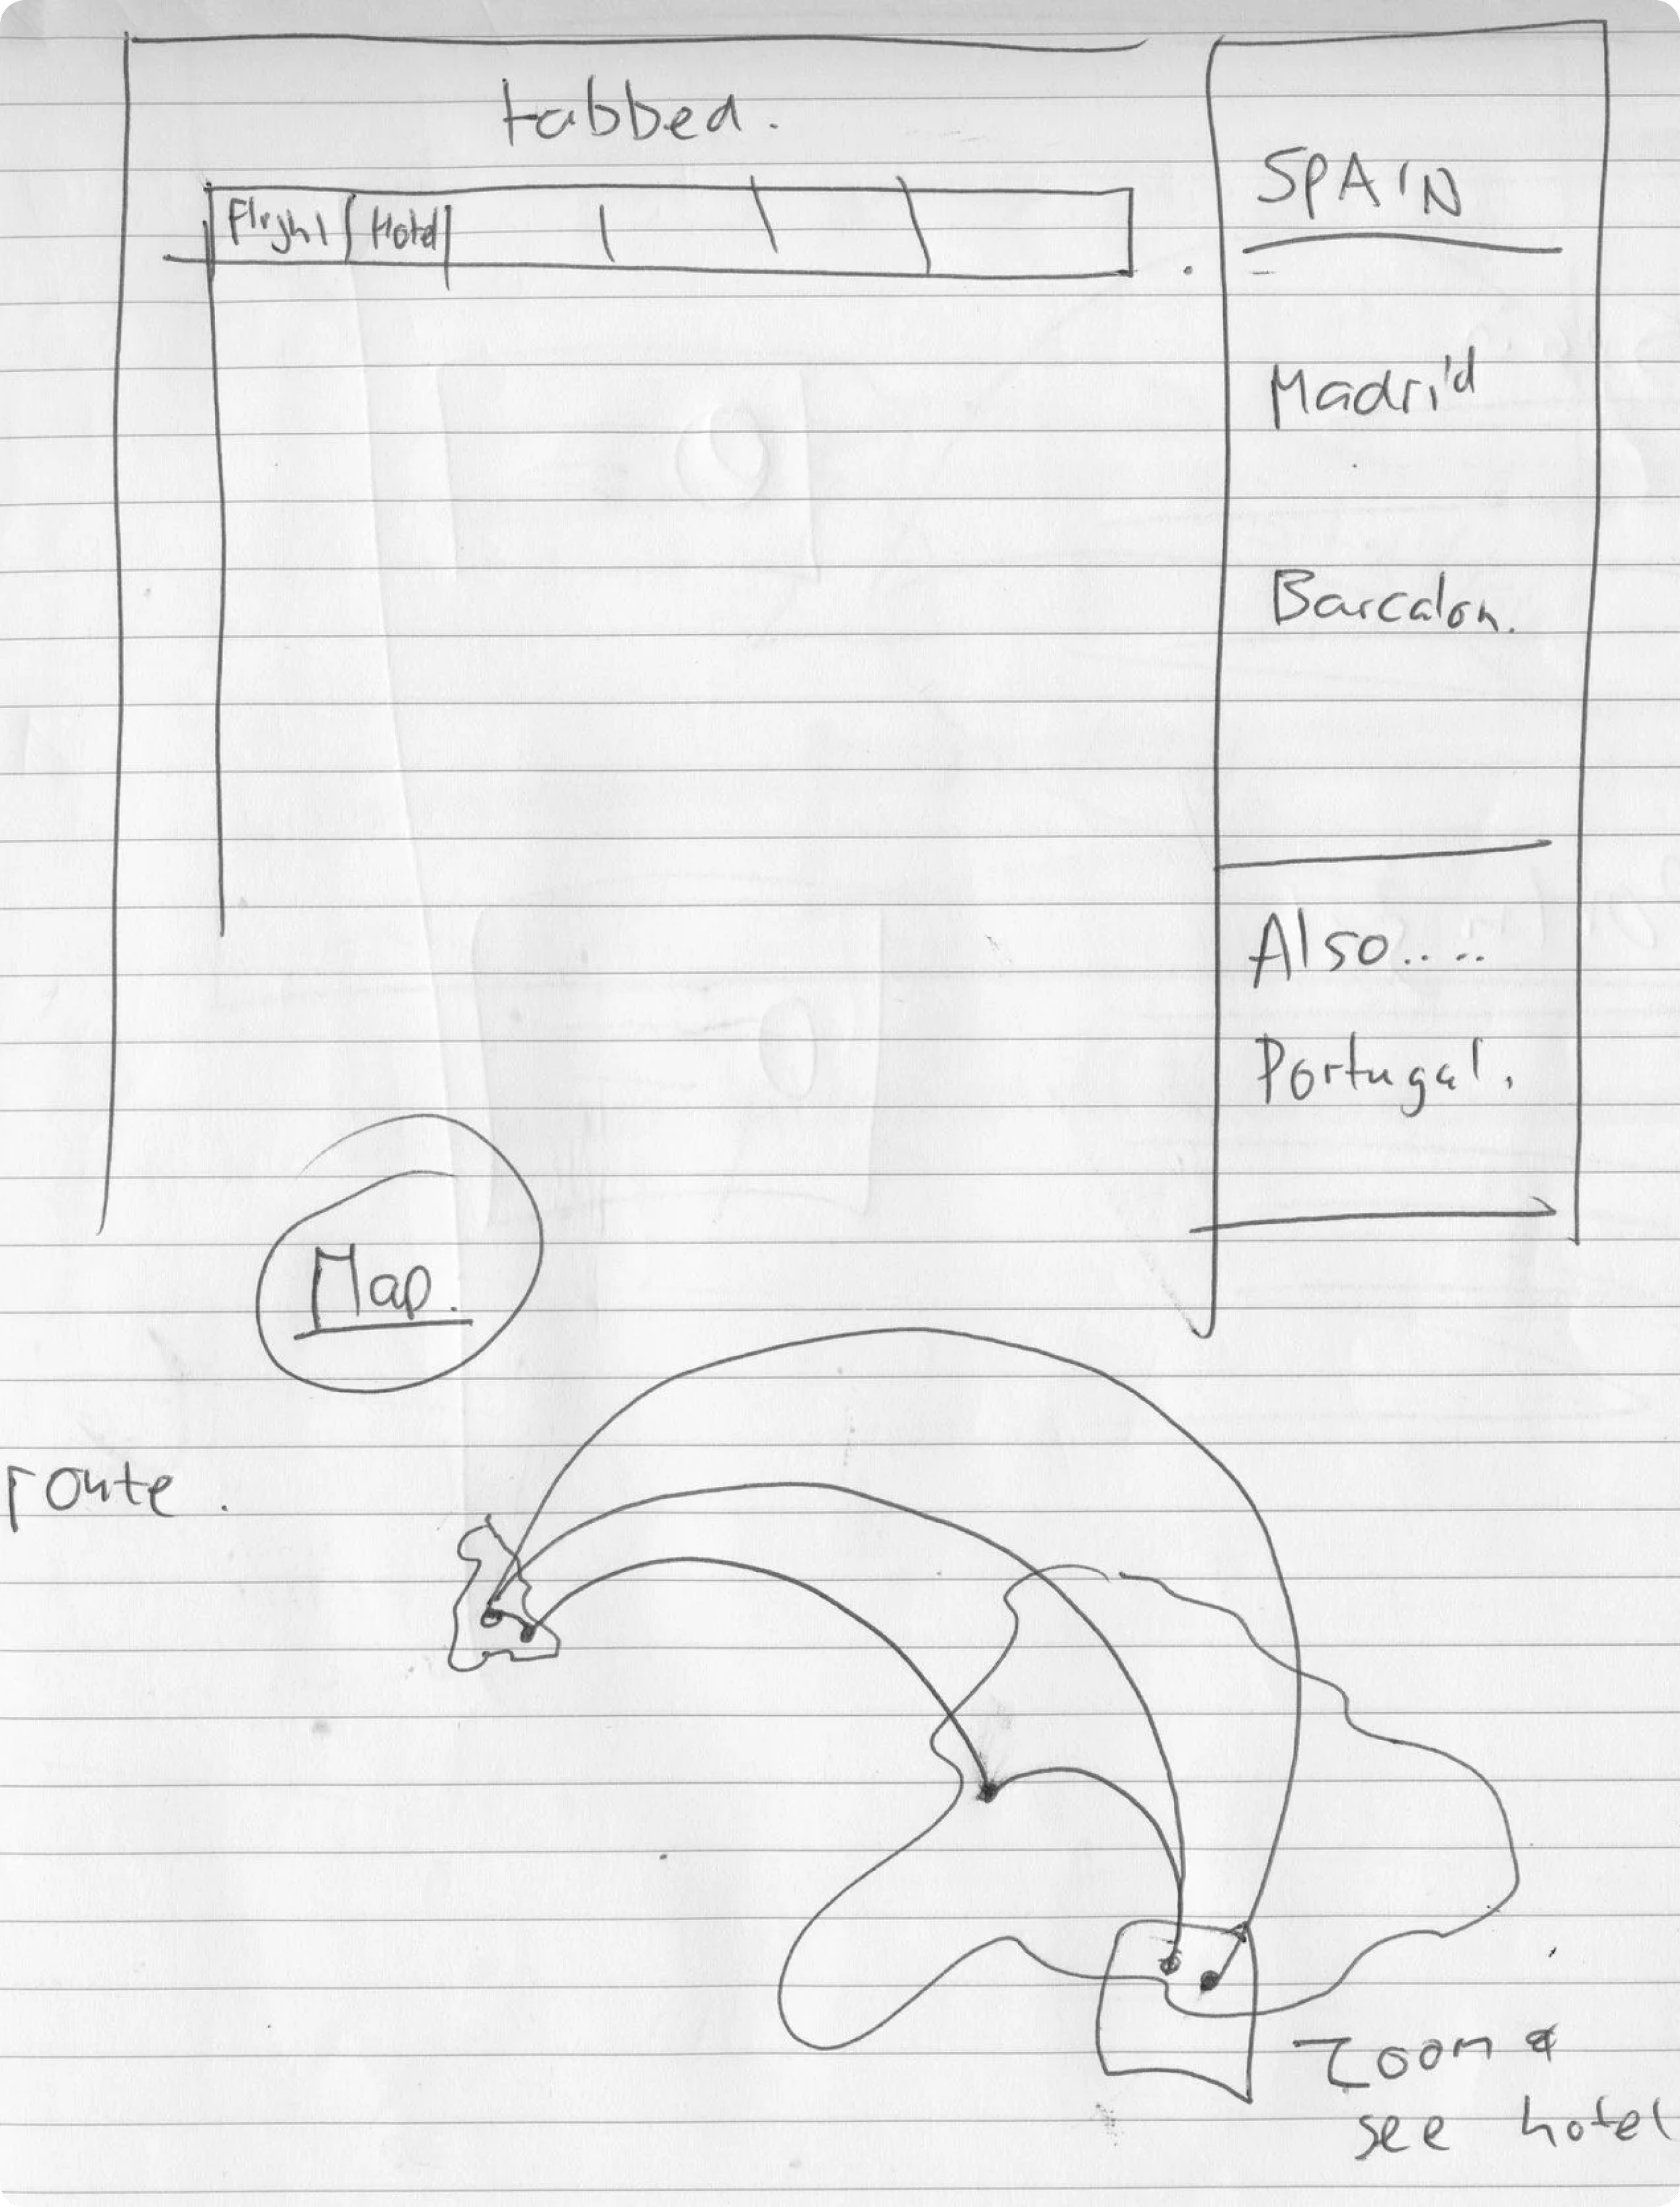 tabbed.
Flight Hotel
SPAIN
Madrid
Barcalon.
Also....
Portugal.
Map.
route.
Zoom &
see hotel